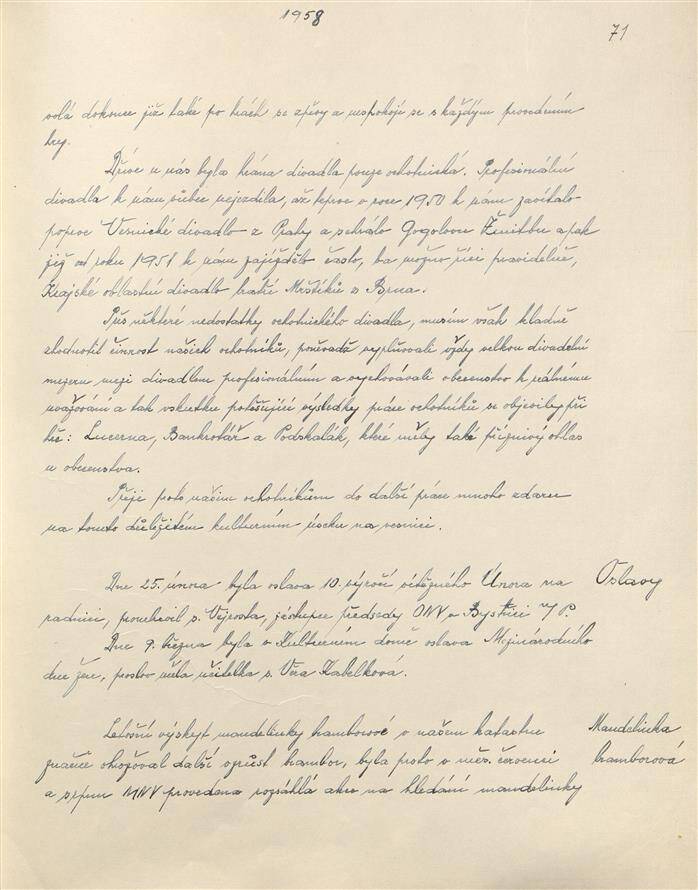 1958
71
volá dokonce již také po hrách se zpěvy a neuspokojí se s každým provedením
hry.
Dříve u nás byla hrána divadla pouze ochotnická. Profesionální
divadla k nám vůbec nejezdila, až teprve v roce 1950 k nám zavítalo
poprve Vesnické divadlo z Prahy a sehrálo Gogolovu Ženitbu a pak
již od roku 1951 k nám zajíždělo často, ba možno říci pravidelně,
Krajské oblastní divadlo bratří Mrštíků z Brna.
Přes některé nedostatky ochotnického divadla, musím však kladně
zhodnotit činnost našich ochotníků, poněvadž vyplňovali vždy velkou divadelní
mezeru mezi divadlem profesionálním a vychovávali obecenstvo k reálnému
uvažování a tak vskutku potěšující výsledky práce ochotníků se objevily při
hře: Lucerna, Bankrotář a Podskalák, které měly také příznivý ohlas
u obecenstva.
Přeji proto našim ochotníkům do další práce mnoho zdaru
na tomto důležitém kulturním úseku na vesnici.
Dne 25. února byla oslava 10. výročí vítězného Února na
Oslavy
radnici, promluvil s. Vejrosta, zástupce předsedy ONV v Bystřici n/P.
Dne 9. března byla v Kulturním domě oslava Mezinárodního
dne žen, proslov měla učitelka s. Věra Kabelková.
Letošní výskyt mandelinky bramborové v našem katastru
Mandelinka
značně ohrožoval další vzrůst brambor, byla proto v měs. červenci
bramborová
a srpnu MNV provedena rozsáhlá akce na hledání mandelinky